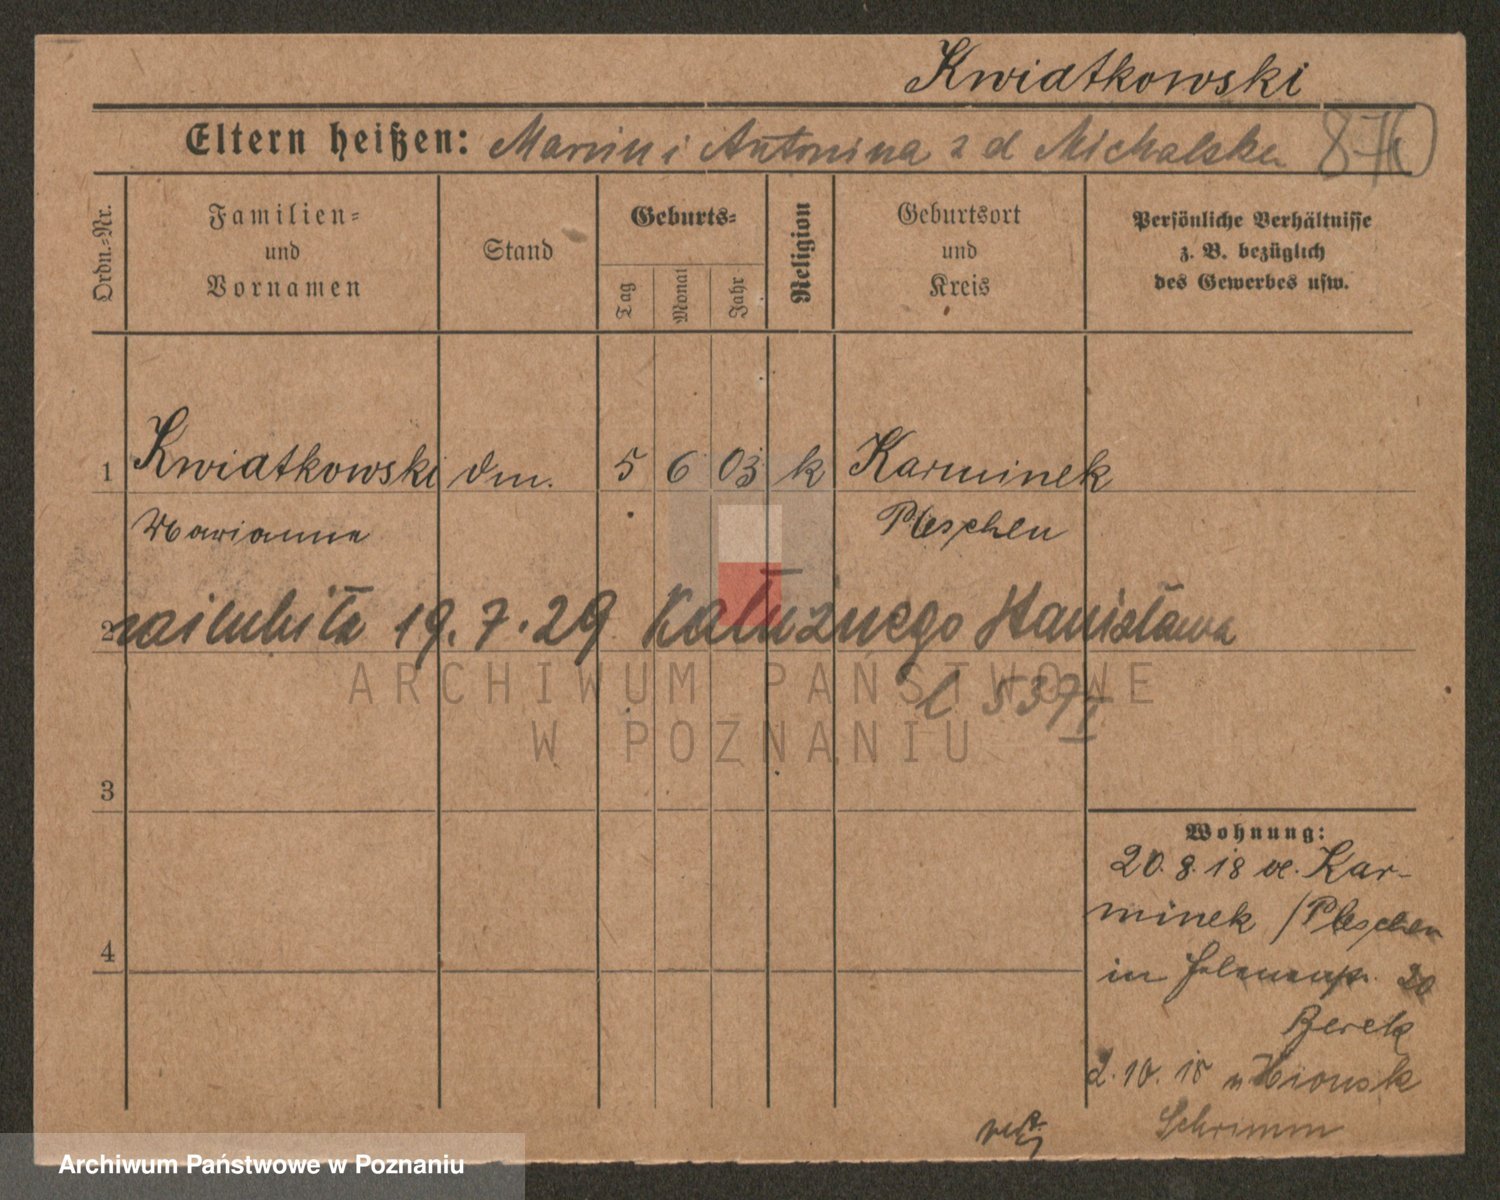 Kwiatkowski
Eltern heißen: Marcin i Antonina z d Michalska 876
Ordn.=Nr.
Familien=
und
Vornamen
Stand
Geburts=
Tag
Monat
Jahr
Religion
Geburtsort
und
Kreis
Persönliche Verhältnisse
z. B. bezüglich
des Gewerbes usw.
1 Kwiatkowski dm. 5 6 03 k Karminek
Marianna Pleschen
2 zaślubiła 19.7.29 Kałużnego Stanisława
l 5371
ARCHIWUM PAŃSTWOWE
W POZNANIU
3
4
Wohnung:
20.8.18 v. Kar-
minek / Pleschen
in 20
Berek
2.10.18 n Xionsk
Schrimm
Archiwum Państwowe w Poznaniu